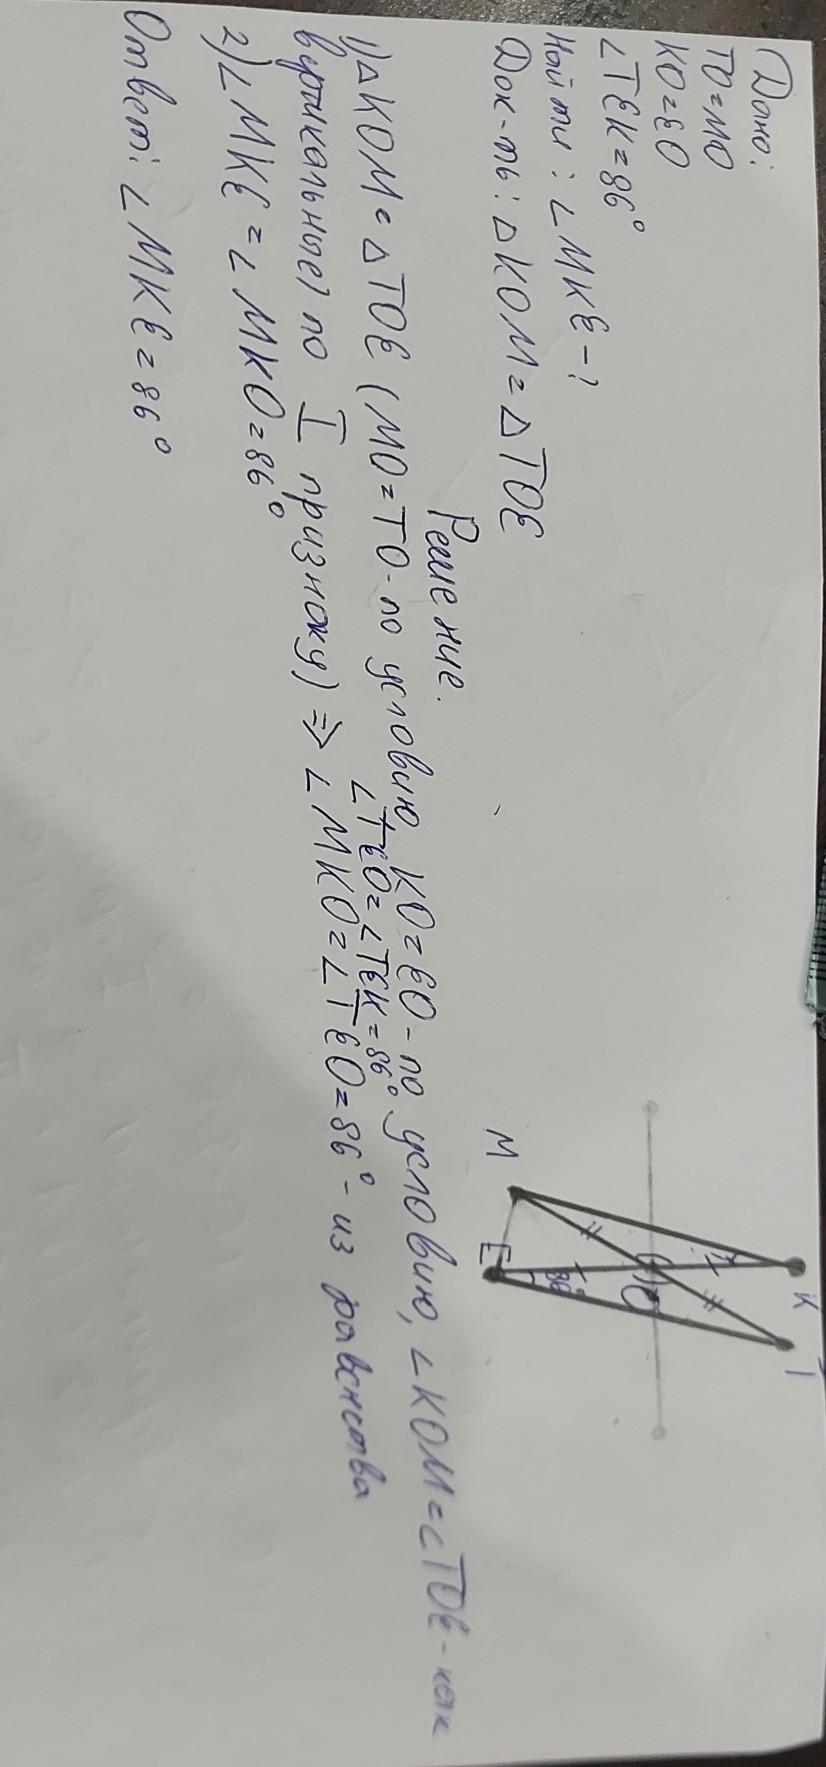 Дано:
TO=MO
KO=EO
∠TEK=86°
Найти: ∠MKE-?
Док-ть: △KOM=△TOE
Решение.
1)△KOM=△TOE (MO=TO-по условию, KO=EO-по условию, ∠KOM=∠TOE-как
∠TEO=∠TEK=86°
вертикальные) по I признаку) ⇒ ∠MKO=∠TEO=86°-из равенства
2)∠MKE=∠MKO=86°
Ответ: ∠MKE=86°
K
T
O
86°
M
E